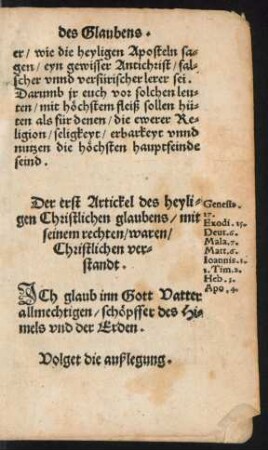 des Glaubens.
er/ wie die heyligen Aposteln sa-
gen/ eyn gewisser Antichrist/ fal-
scher vnnd verfürischer lerer sei.
Darumb jr euch vor solchen leu-
ten/ mit höchstem fleiß sollen hü-
ten als für denen/ die ewerer Re-
ligion/ seligkeyt/ erbarkeyt vnnd
nutzen die höchsten hauptfeinde
seind.
Der erst Artickel des heyli-
gen Christlichen glaubens/ mit
seinem rechten/ waren/
Christlichen ver-
standt.
Genesis.
17.
Exodi. 15.
Deut. 6.
Mala. 7.
Matt. 6.
Ioannis. 1.
1. Tim. 2.
Heb. 3.
Apo. 4.
ICh glaub inn Gott Vatter
allmechtigen/ schöpffer des Hi-
mels vnd der Erden.
Volget die außlegung.